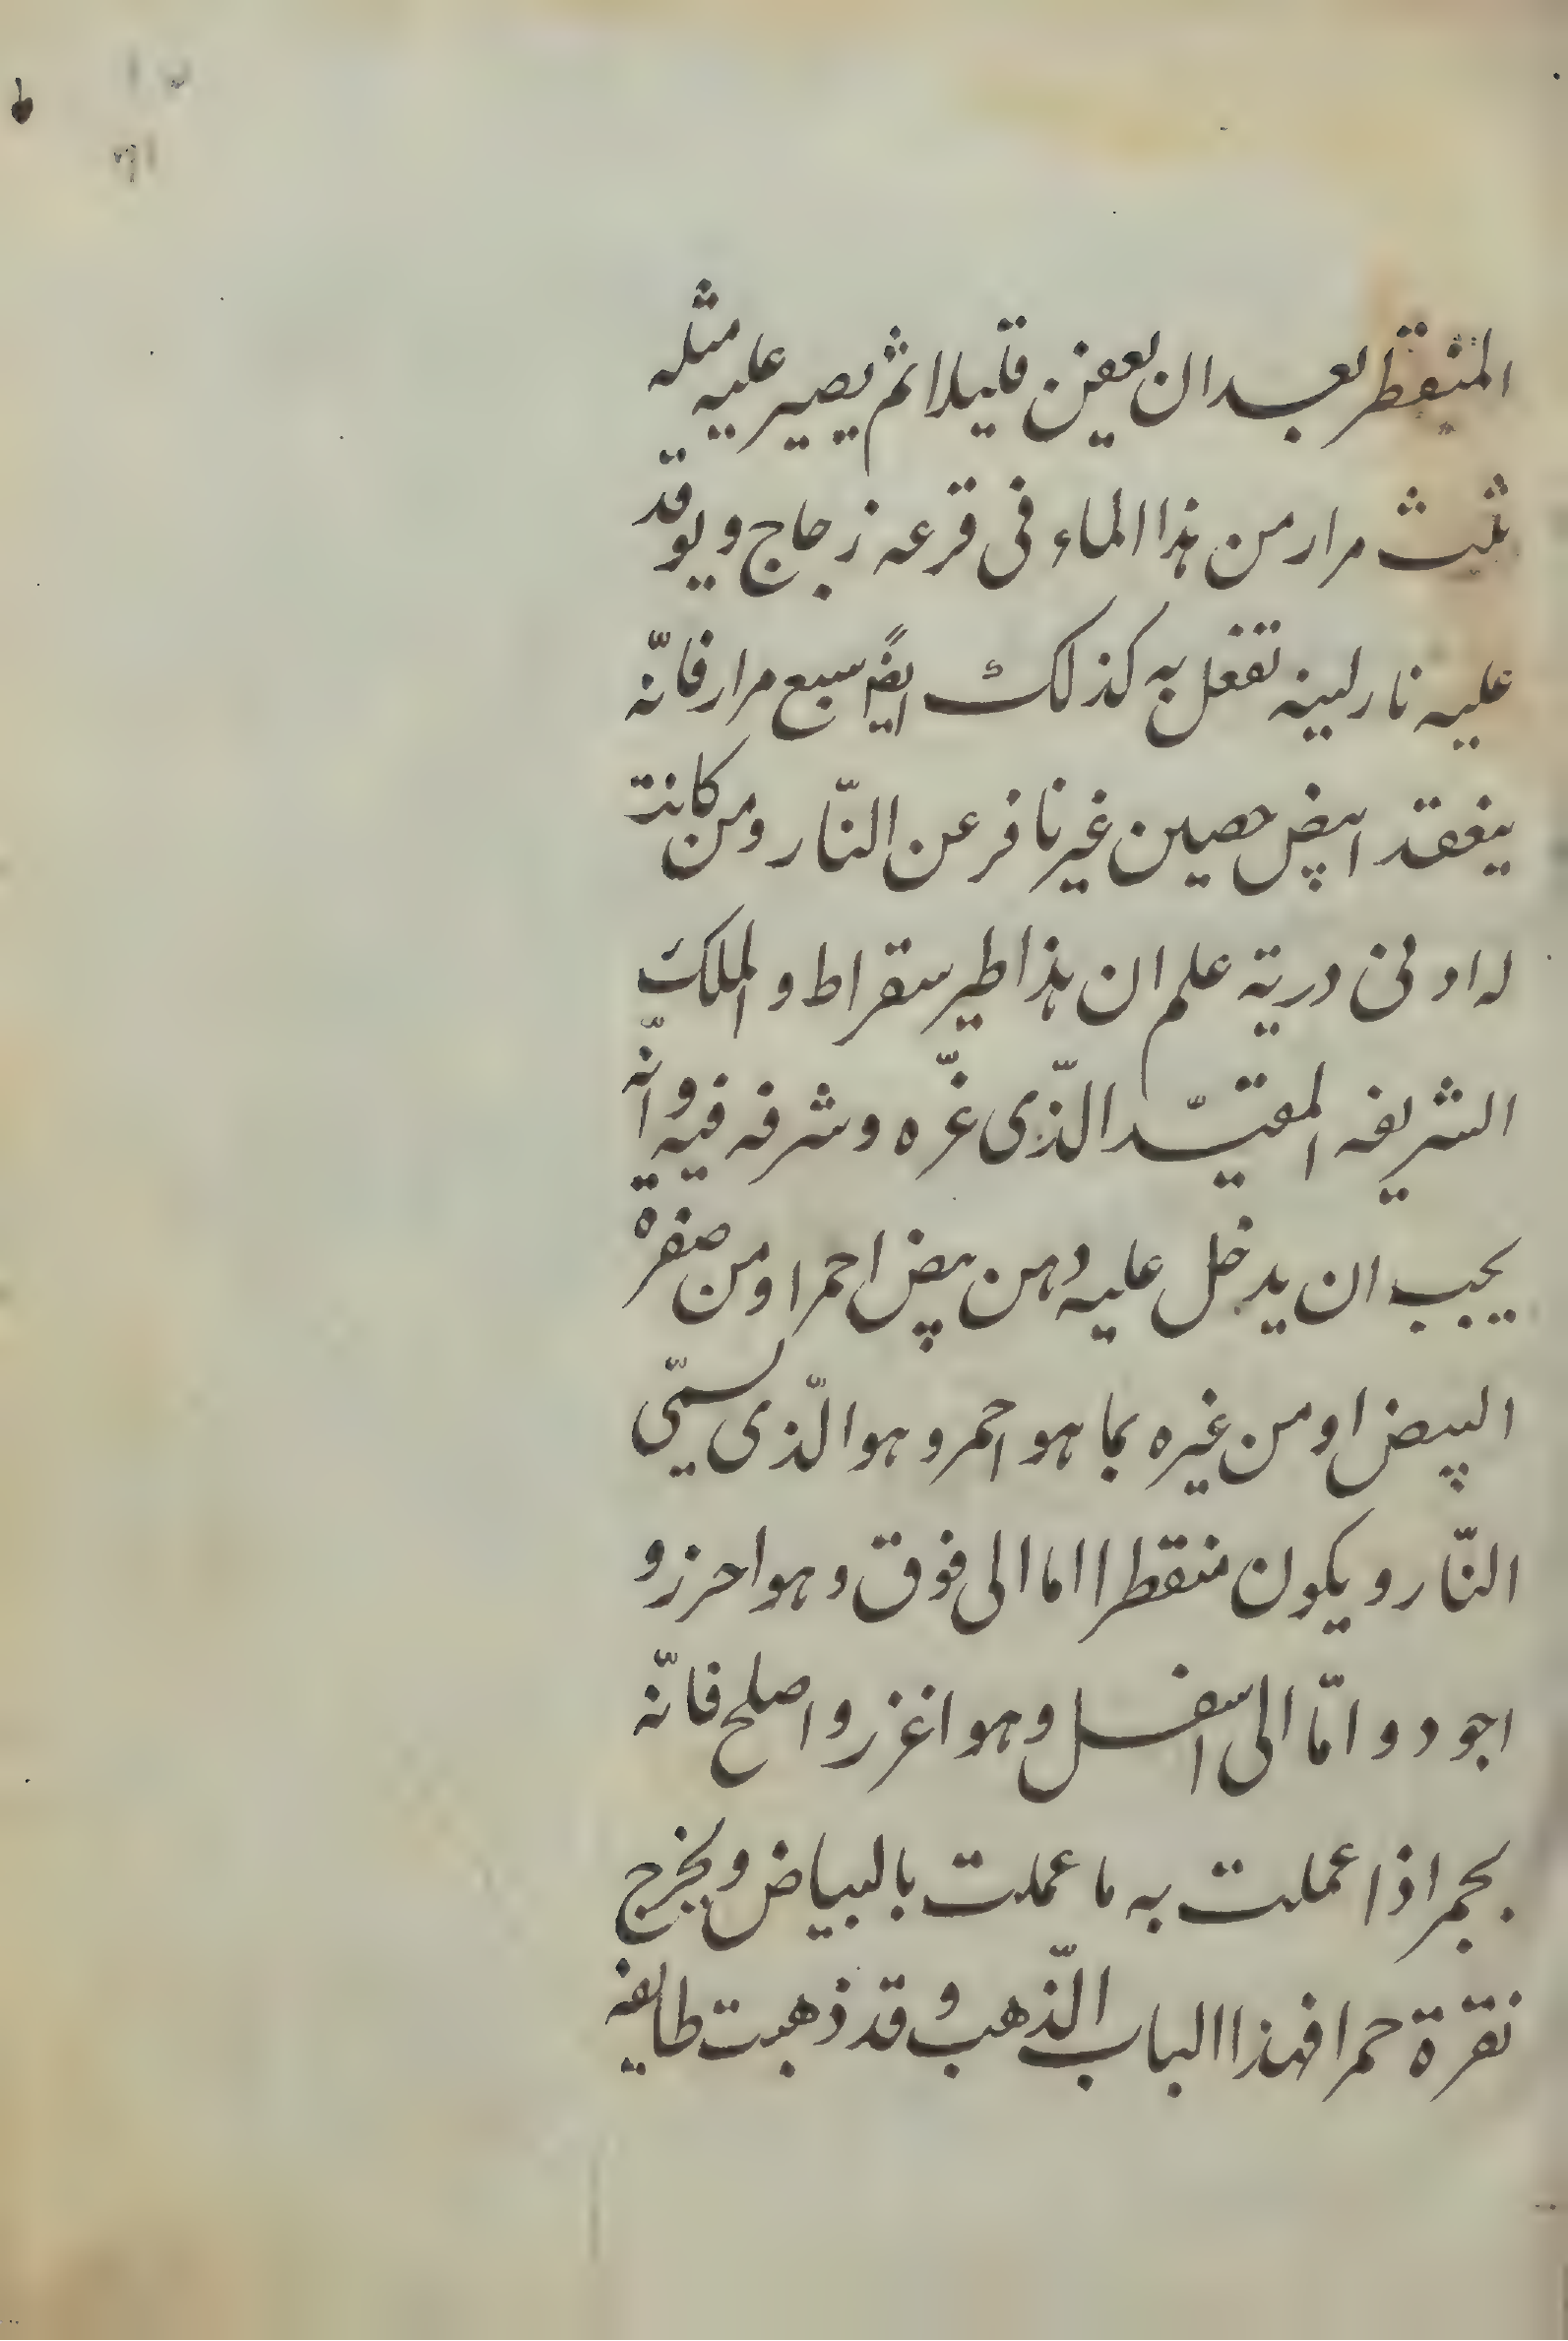 المنقطر بعد ان یعفن قلیلا ثم یصیر علیه مثله
ثلث مرار من هذا الماء فی قرعه زجاج و یوقد
علیه نار لینه تفعل به كذلك ایضً سبع مرار فانّه
ینعقد ابیض حصین غیر نافر عن النّار و من كانت
له ادنی دریة علم ان هذا طیر سقراط و الملك
الشریفه المقیّد الّذی غرّه و شرفه فیه و انّه
یجب ان یدخل علیه دهن بیض احمر او من صفرة
البیض او من غیره بما هو احمر و هو الّذی یسمّی
النّار و یكون منقطرا اما الی فوق و هو احرز و
اجود و امّا الی اسفل و هو اغزر و اصلح فانّه
یحمر اذا عملت به ما عملت بالبیاض و یخرج
نقرة حمرا فهذا الباب الّذهب و قد ذهبت طایفه